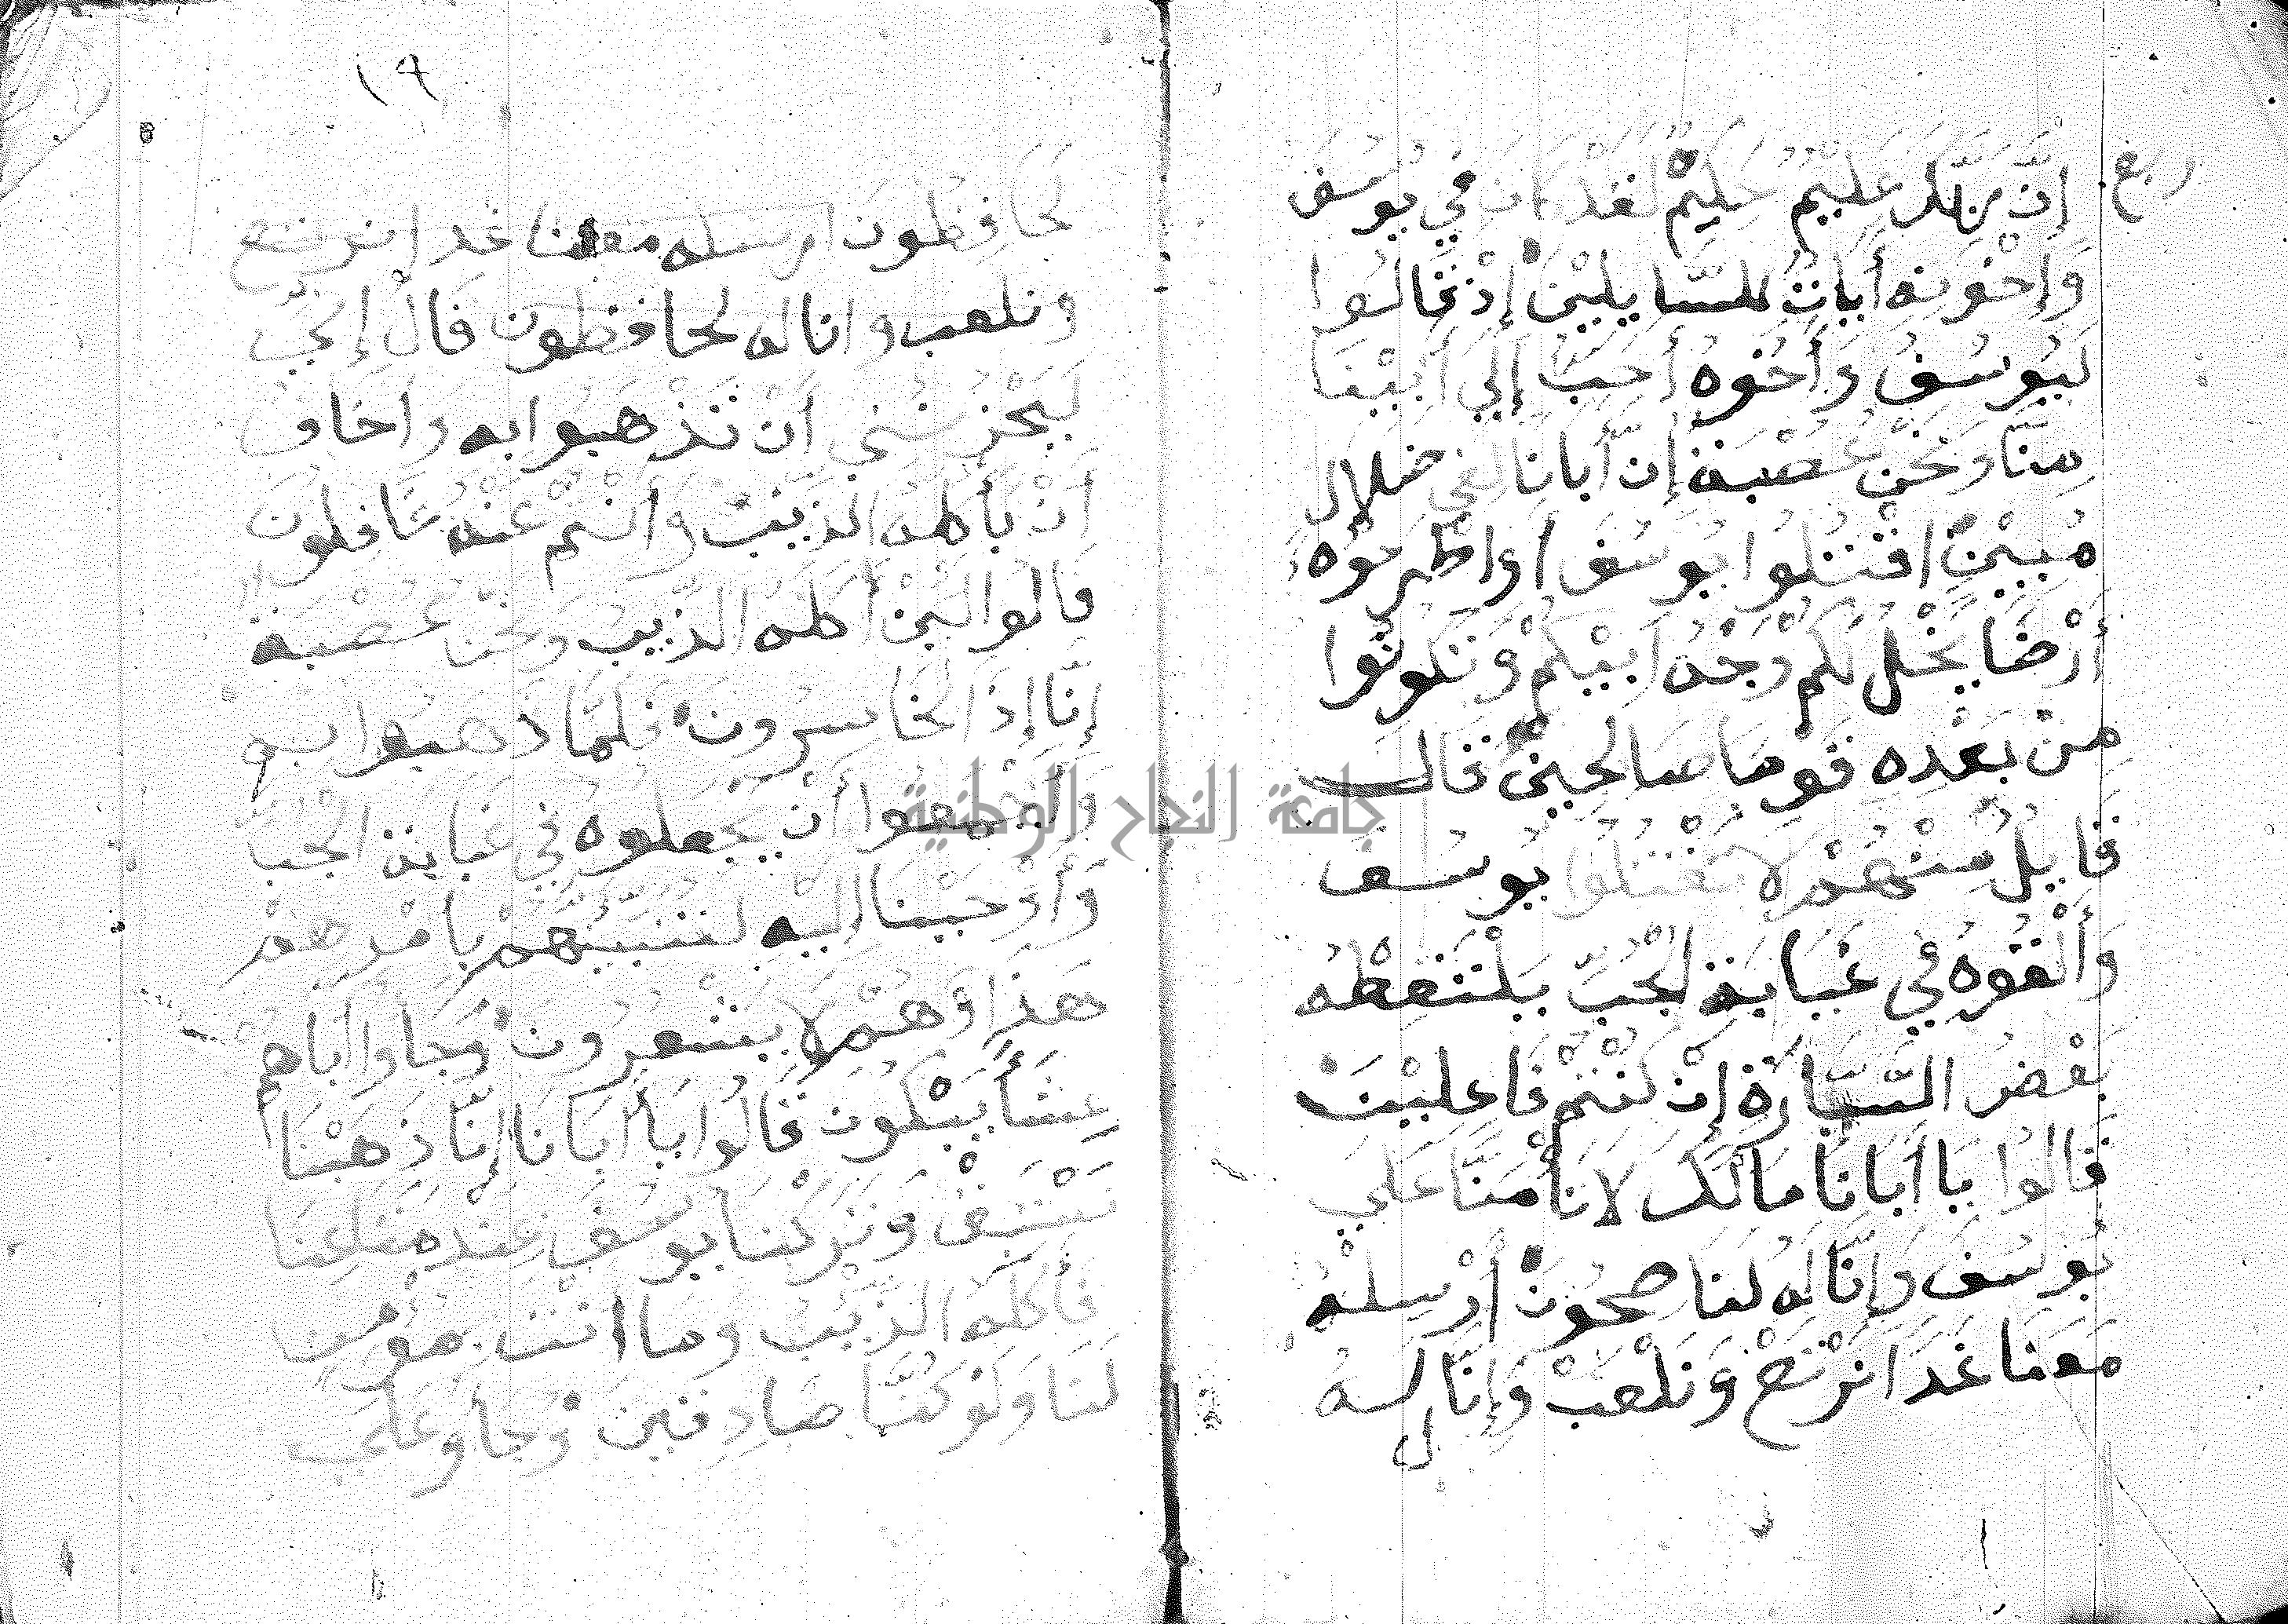 ربع
إنّ ربّك عَلِيمٌ حَكِيمٌ لَقَدْ كَانَ في يُوسُفَ
وَإِخْوَتِهِ أَيَاتٌ للسَّايلِيْنَ إِذْ قَالُوا
لَيُوسُفُ وَأَخُوهُ أَحَبُّ إِلَى أَبِيْنَا
مِنَّا وَنَحْنُ عُصْبَةٌ إِنَّ أَبَانَا لفي ضلال
مُبِيْنٍ اقْتُلُوا يُوسُفَ أو اطْرَحُوه
أَرْضًا يَخْلُ لَكُمْ وَجْهُ أَبِيْكُمْ وَتَكُونُوا
مِنْ بَعْدِه قَوْمًا صَالِحِينَ قَالَ
قَايِلٌ مِنْهُمْ لَا تَقْتُلُوا يُوسُف
وَأَلْقُوهُ فِي غَيَابَةِ الْجُبِّ يَلْتَقِطْهُ
بَعْضُ السَّيَّارَةِ إِنْ كُنْتُمْ فَاعِلِيْنَ
قَالُوا يَا أَبَانَا مَا لَكَ لَا تَأْمَنَّا عَلَى
يُوسُفَ وَإِنَّا لَهُ لَنَاصِحُونَ أَرْسِلْهُ
مَعَنَا غَدًا نَرْتَعْ وَنَلْعَبْ وَإِنَّا لَهُ
١٩
لَحَافِظُونَ ارسله معنا غدا نرتع
ونلعب وانا له لحافظون قَالَ إِنِّي
لَيَحْزُنُنِي أَنْ تَذْهَبُوا به وَأَخَافُ
أَنْ يَأْكُلَهُ الذِّيبُ وَأَنْتُمْ عَنْهُ غَافِلُونَ
قَالُوا لَئِنْ أَكَلَهُ الذِّيبُ وَنَحْنُ عُصْبَة
إِنَّا إِذًا لَخَاسِرُونَ فَلَمَّا ذَهَبُوا بِهِ
وَأَجْمَعُوا أَنْ يَجْعَلُوهُ فِي غَيَابَةِ الْجُبِّ
وَأَوْحَيْنَا إِلَيْهِ لَتُنَبِّئَنَّهُمْ بِأَمْرِهِمْ
هَذَا وَهُمْ لَا يَشْعُرُونَ وَجَاوا أَبَاهم
عِشَأً يَبْكُونَ قَالُوا يَا أَبَانَا إِنَّا ذَهَبْنَا
نَسْتَبِقُ وَتَرَكْنَا يُوسُفَ عِنْدَ مَتَاعِنَا
فَأَكَلَهُ الذِّيْبُ وَمَا انْتَ بِمُؤْمِنٍ
لَنَا وَلَوْ كُنَّا صَادِقِينَ وَجَأو عَلَى
جامعة النجاح الوطنية